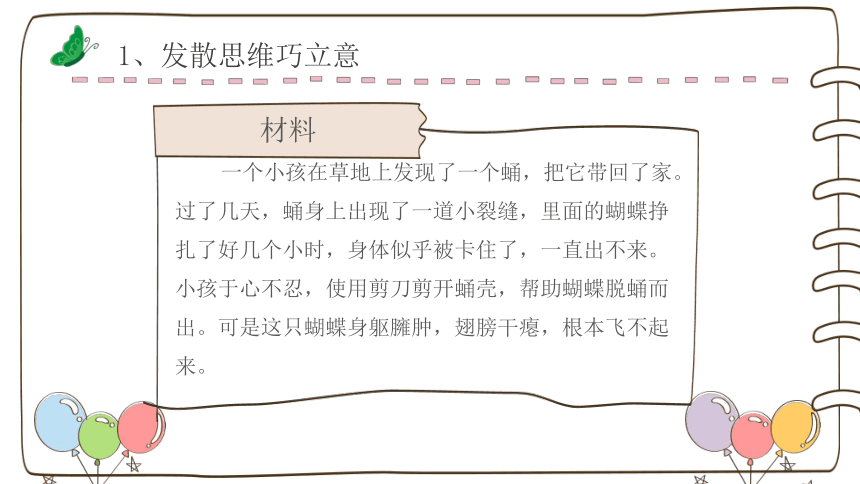 1、发散思维巧立意
材料
一个小孩在草地上发现了一个蛹，把它带回了家。
过了几天，蛹身上出现了一道小裂缝，里面的蝴蝶挣
扎了好几个小时，身体似乎被卡住了，一直出不来。
小孩于心不忍，使用剪刀剪开蛹壳，帮助蝴蝶脱蛹而
出。可是这只蝴蝶身躯臃肿，翅膀干瘪，根本飞不起
来。